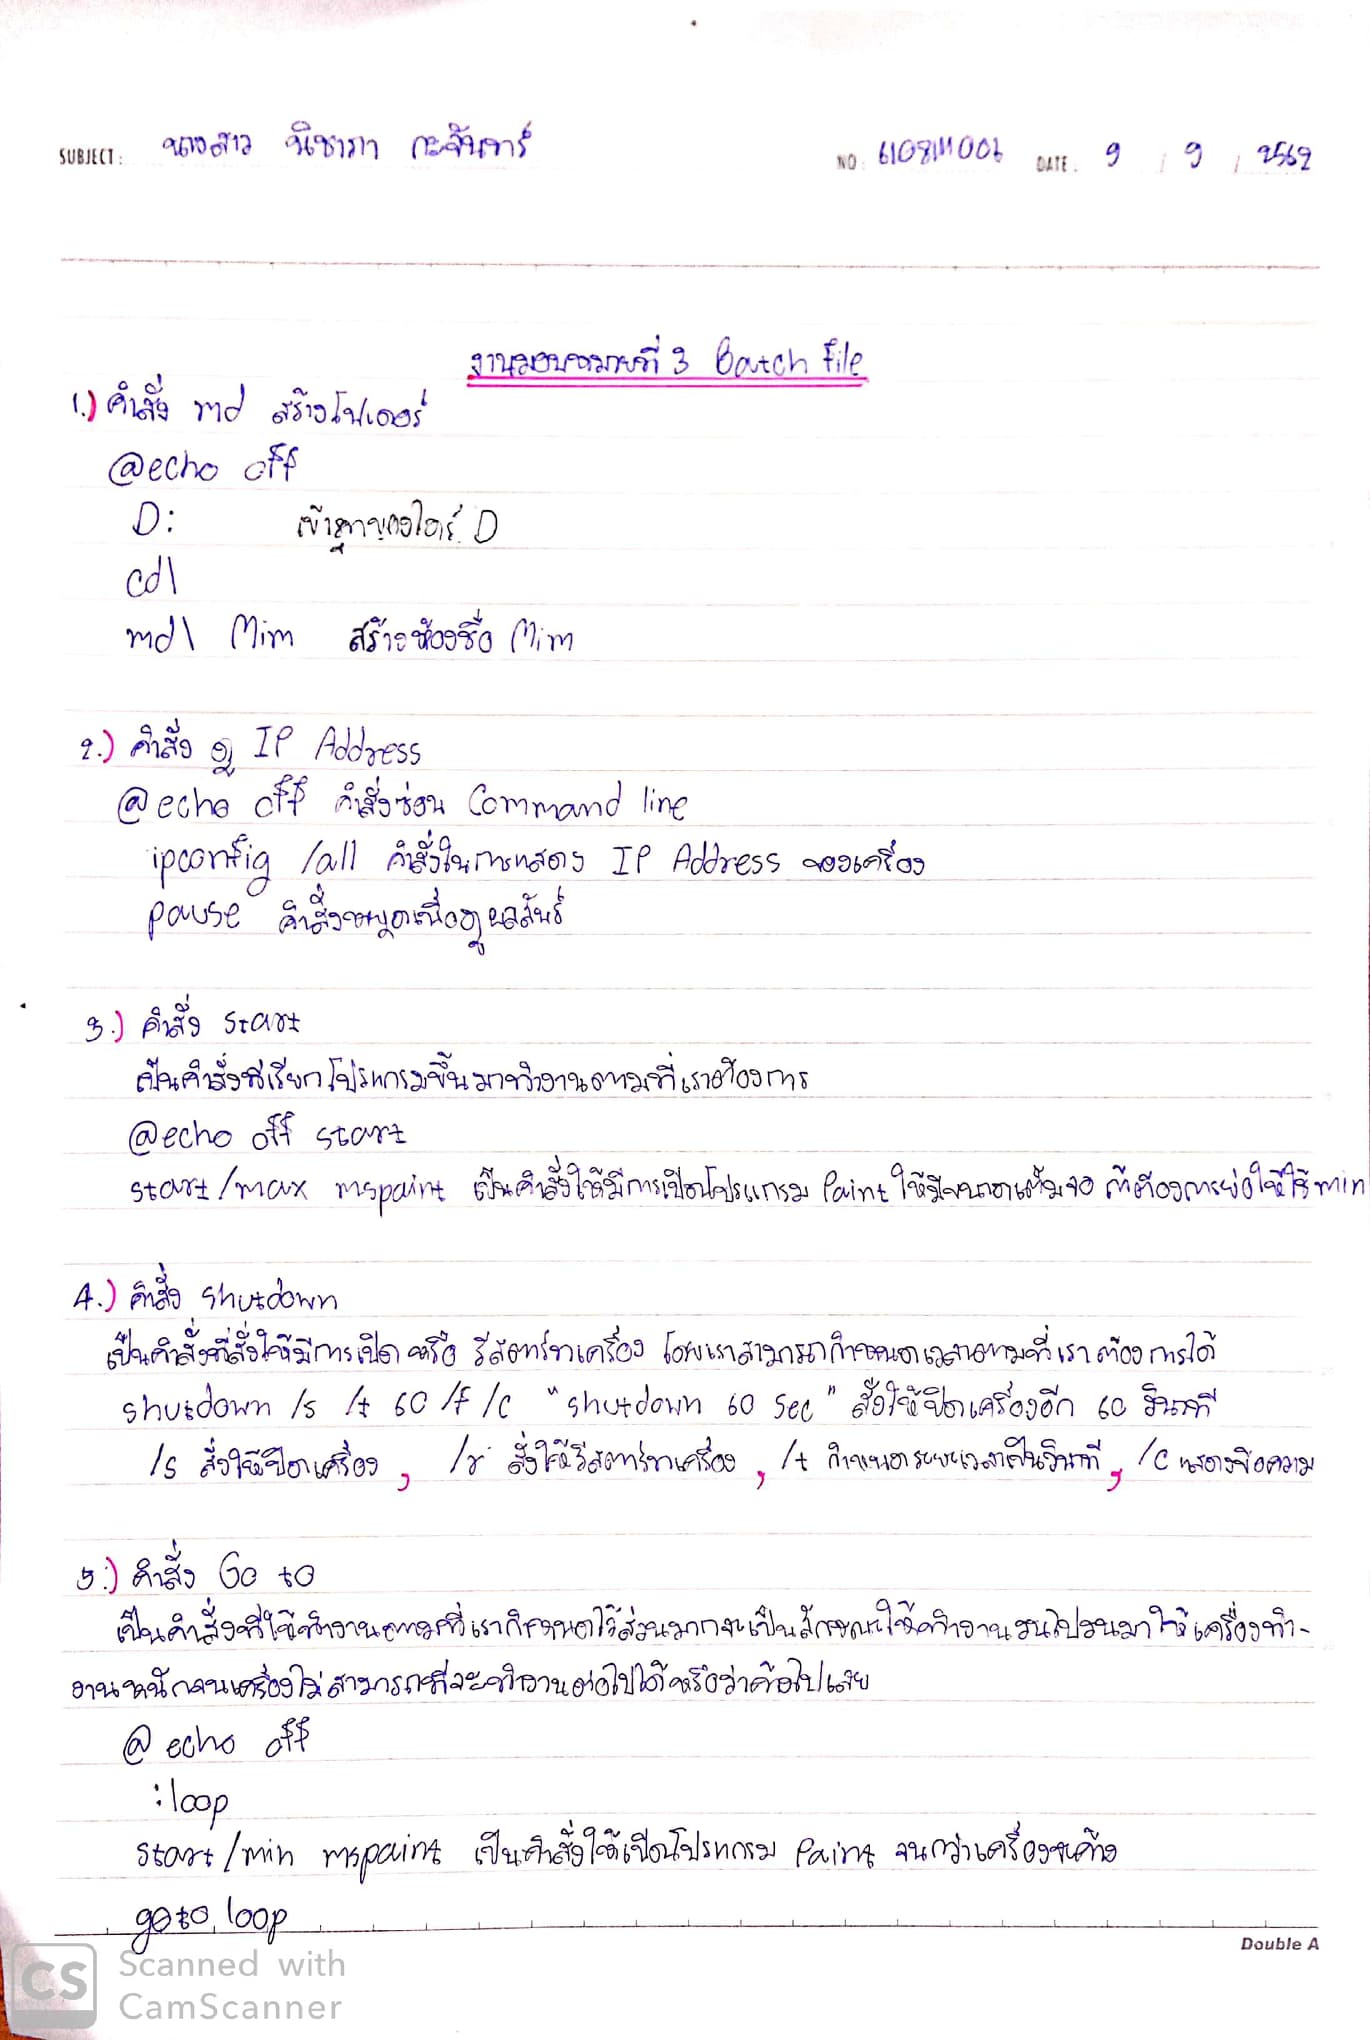 SUBJECT: นางสาว ณิชาภา กะจันทร์ NO: 6108111006 DATE. 9 / 9 / 2562
งานมอบหมายที่ 3 Batch file
1.) คำสั่ง md สร้างโฟเดอร์
@echo off
D: เข้ามาของไดร์ D
cd\
md\ Mim สร้างห้องชื่อ Mim
2.) คำสั่ง ดู IP Address
@echo off คำสั่งซ่อน Command line
ipconfig /all คำสั่งในการแสดง IP Address ของเครื่อง
pause คำสั่งหยุดเพื่อดูผลลัพธ์
3.) คำสั่ง start
เป็นคำสั่งที่เรียกโปรแกรมขึ้นมาทำงานตามที่เราต้องการ
@echo off start
start/max mspaint เป็นคำสั่งให้มีการเปิดโปรแกรม Paint ให้มีขนาดเต็มจอ ถ้าต้องการย่อให้ใช้ min
4.) คำสั่ง shutdown
เป็นคำสั่งที่สั่งให้มีการเปิด หรือ รีสตาร์ทเครื่อง โดยเราสามารถกำหนดเวลาตามที่เราต้องการได้
shutdown /s /t 60 /f /c "shutdown 60 sec" สั่งให้ปิดเครื่องอีก 60 วินาที
/s สั่งให้ปิดเครื่อง , /r สั่งให้รีสตาร์ทเครื่อง , /t กำหนดระยะเวลาเป็นวินาที , /c แสดงข้อความ
5.) คำสั่ง Go to
เป็นคำสั่งที่ให้ทำงานตามที่เรากำหนดไว้ส่วนมากจะเป็นลักษณะให้ทำงานวนไปวนมาให้เครื่องทำ-
งานหนักจนเครื่องไม่สามารถที่จะทำงานต่อไปได้หรือว่าค้างไปเลย
@ echo off
:loop
start/min mspaint เป็นคำสั่งให้เปิดโปรแกรม Paint จนกว่าเครื่องจะค้าง
goto loop
Double A
CS Scanned with
CamScanner